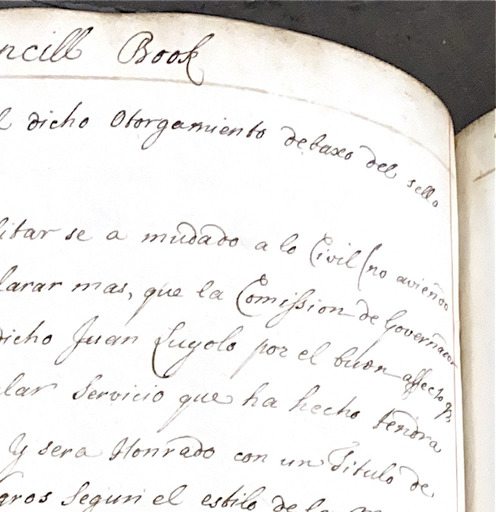 ncill Book
l dicho Otorgamiento debaxo del sello
litar se a mudado a lo Civil (no aviendo
larar mas, que la Comission de Governador
dicho Juan Luyolo por el buen affecto q
lar Servicio que ha hecho tendra
Y sera Honrado con un Titulo de
gros segun el estilo de la